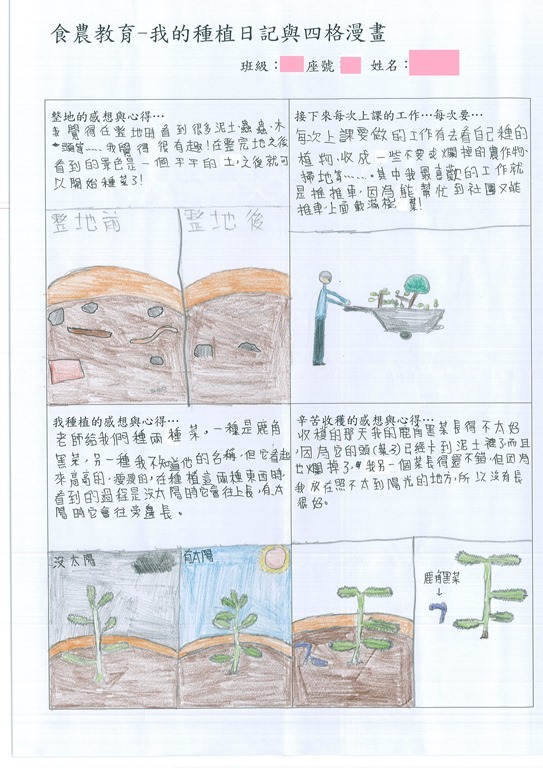 食農教育-我的種植日記與四格漫畫
班級： 座號： 姓名：
整地的感想與心得…
我覺得在整地時看到很多泥土蟲蟲、木
頭等……我覺得很有趣！在整完地之後
看到的景色是一個平平的土，之後就可
以開始種菜了！
整地前
整地後
接下來每次上課的工作…每次要…
每次上課要做的工作有去看自己種的
植物、收成一些不要或爛掉的農作物、
掃地等……。其中我最喜歡的工作就
是推推車，因為能幫忙到社團又能
推車，上面載滿 菜！
我種植的感想與心得…
老師給我們種兩種菜，一種是鹿角
萵菜，另一種我不知道他的名稱，但它看起
來高高的、瘦瘦的，在種植這兩種東西時，
看到的過程是沒太陽時它會往上長，有太
陽時它會往旁邊長。
沒太陽
有太陽
辛苦收穫的感想與心得…
收穫的那天我的鹿角萵菜長得不太好
，因為它的頭(菜子)已經卡到泥土裡了而且
也爛掉了，我另一個菜長得還不錯，但因為
我放在照不太到陽光的地方，所以沒有長
很好。
鹿角萵菜
↓